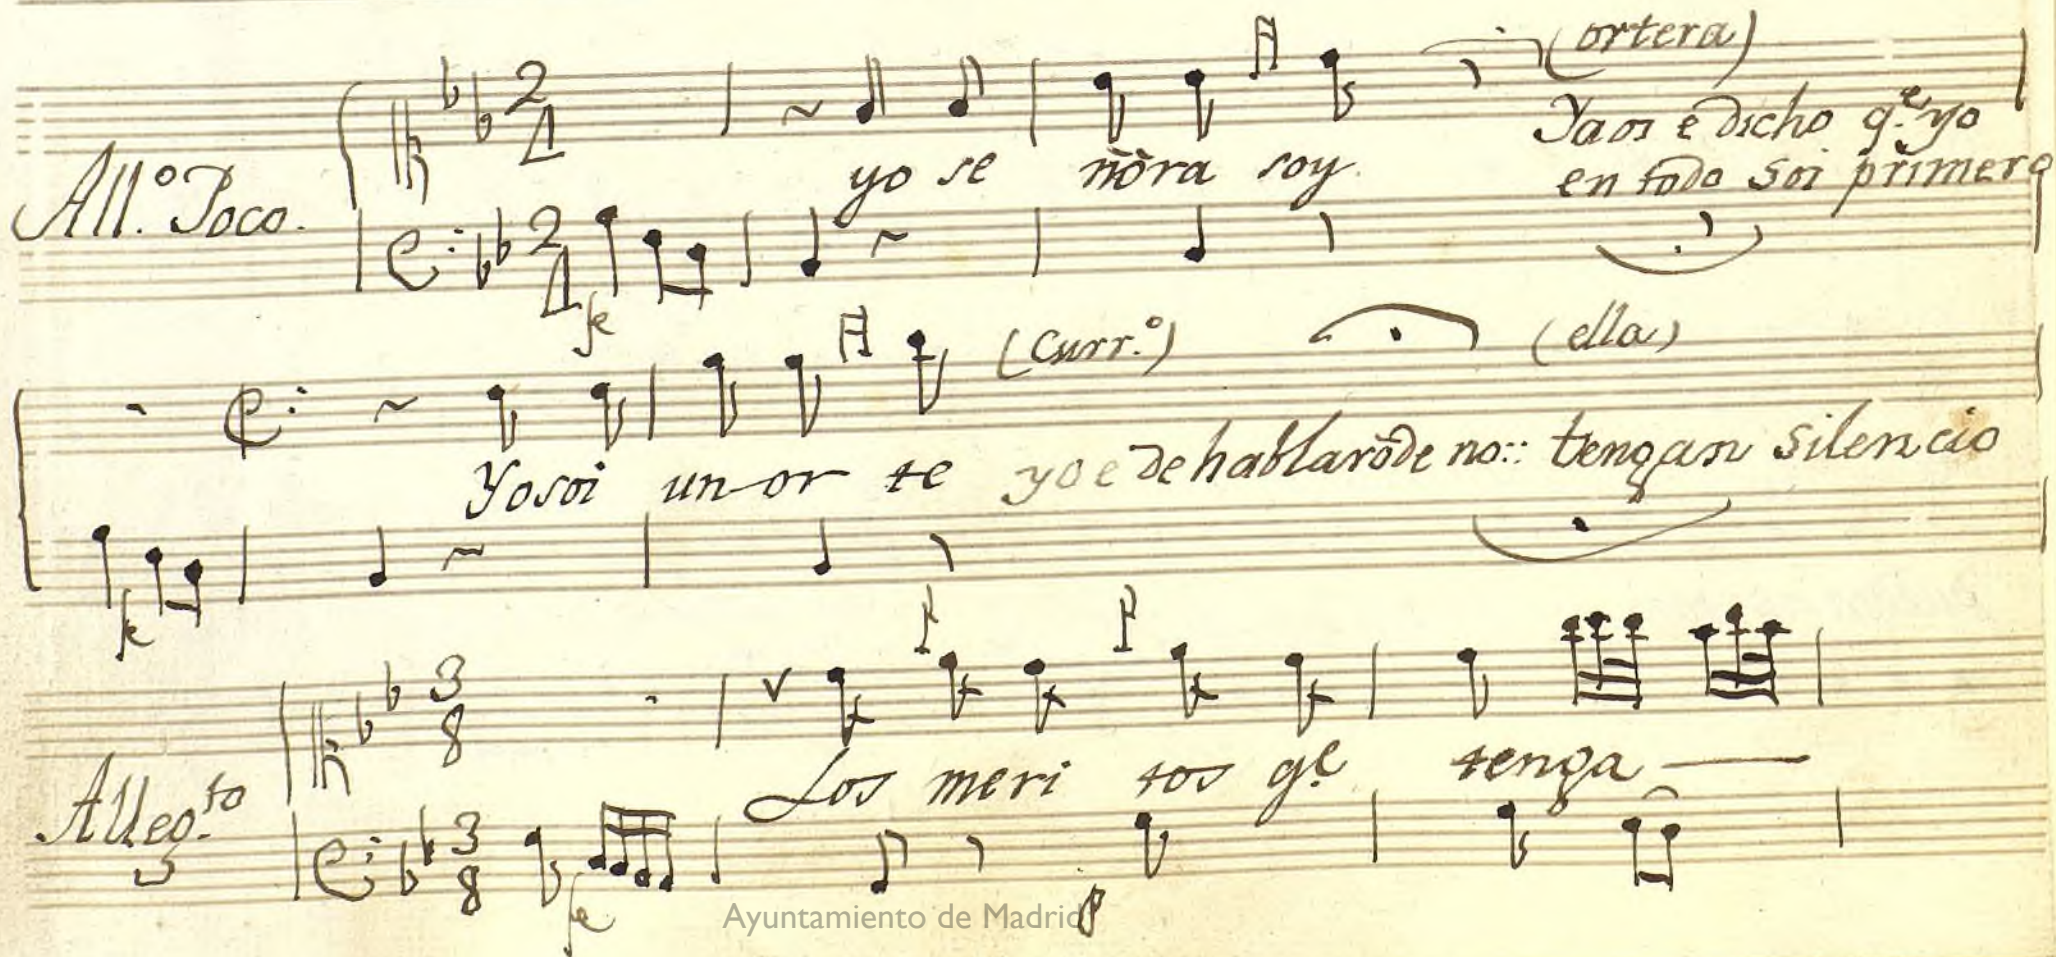 (ortera)
All.o Poco. yo se ñora soy. Ya os e dicho q.e yo
en todo soi primero
fe
(Curr.o) (ella)
Yo soi un or te yo e de hablar ò de no:: tengan silencio
fe
Alleg.to Los meri tos q.e tenga
fe p
Ayuntamiento de Madrid